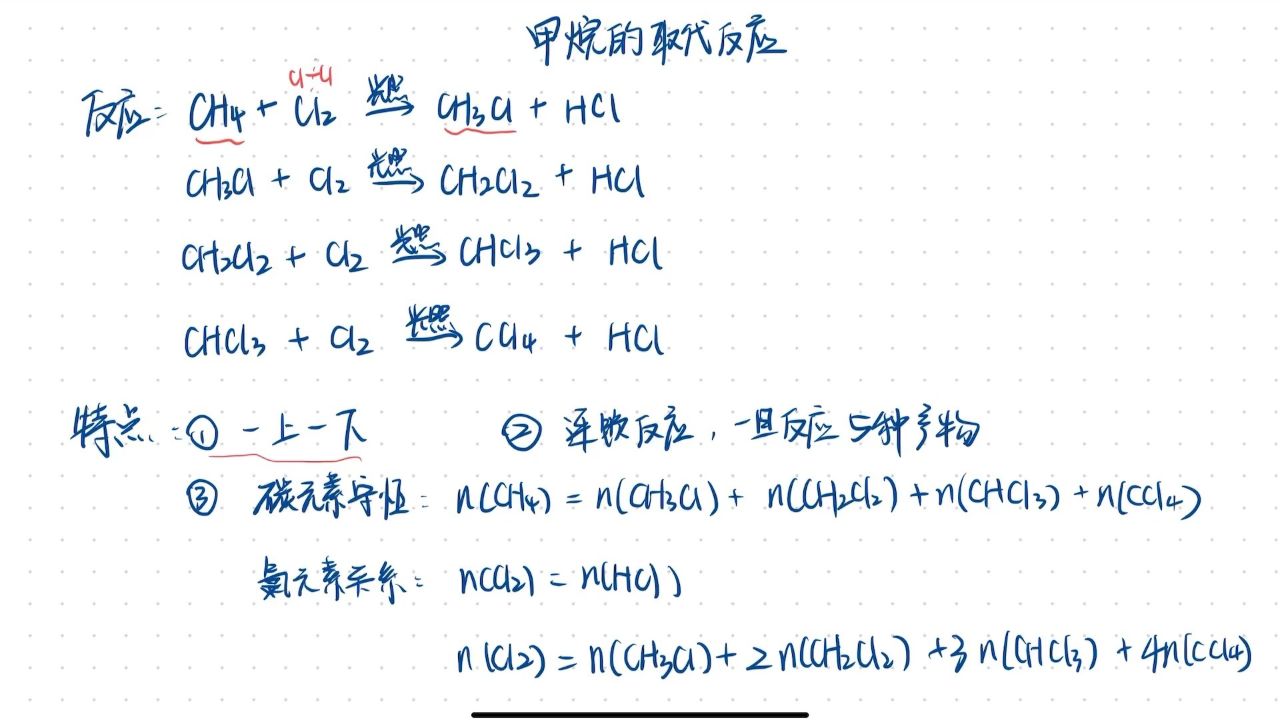 甲烷的取代反应
Cl-Cl
反应: CH4 + Cl2 光照→ CH3Cl + HCl
CH3Cl + Cl2 光照→ CH2Cl2 + HCl
CH2Cl2 + Cl2 光照→ CHCl3 + HCl
CHCl3 + Cl2 光照→ CCl4 + HCl
特点: ① 一上一下 ② 连锁反应, 一旦反应5种产物
③ 碳元素守恒: n(CH4) = n(CH3Cl) + n(CH2Cl2) + n(CHCl3) + n(CCl4)
氯元素关系: n(Cl2) = n(HCl)
n(Cl2) = n(CH3Cl) + 2n(CH2Cl2) + 3n(CHCl3) + 4n(CCl4)